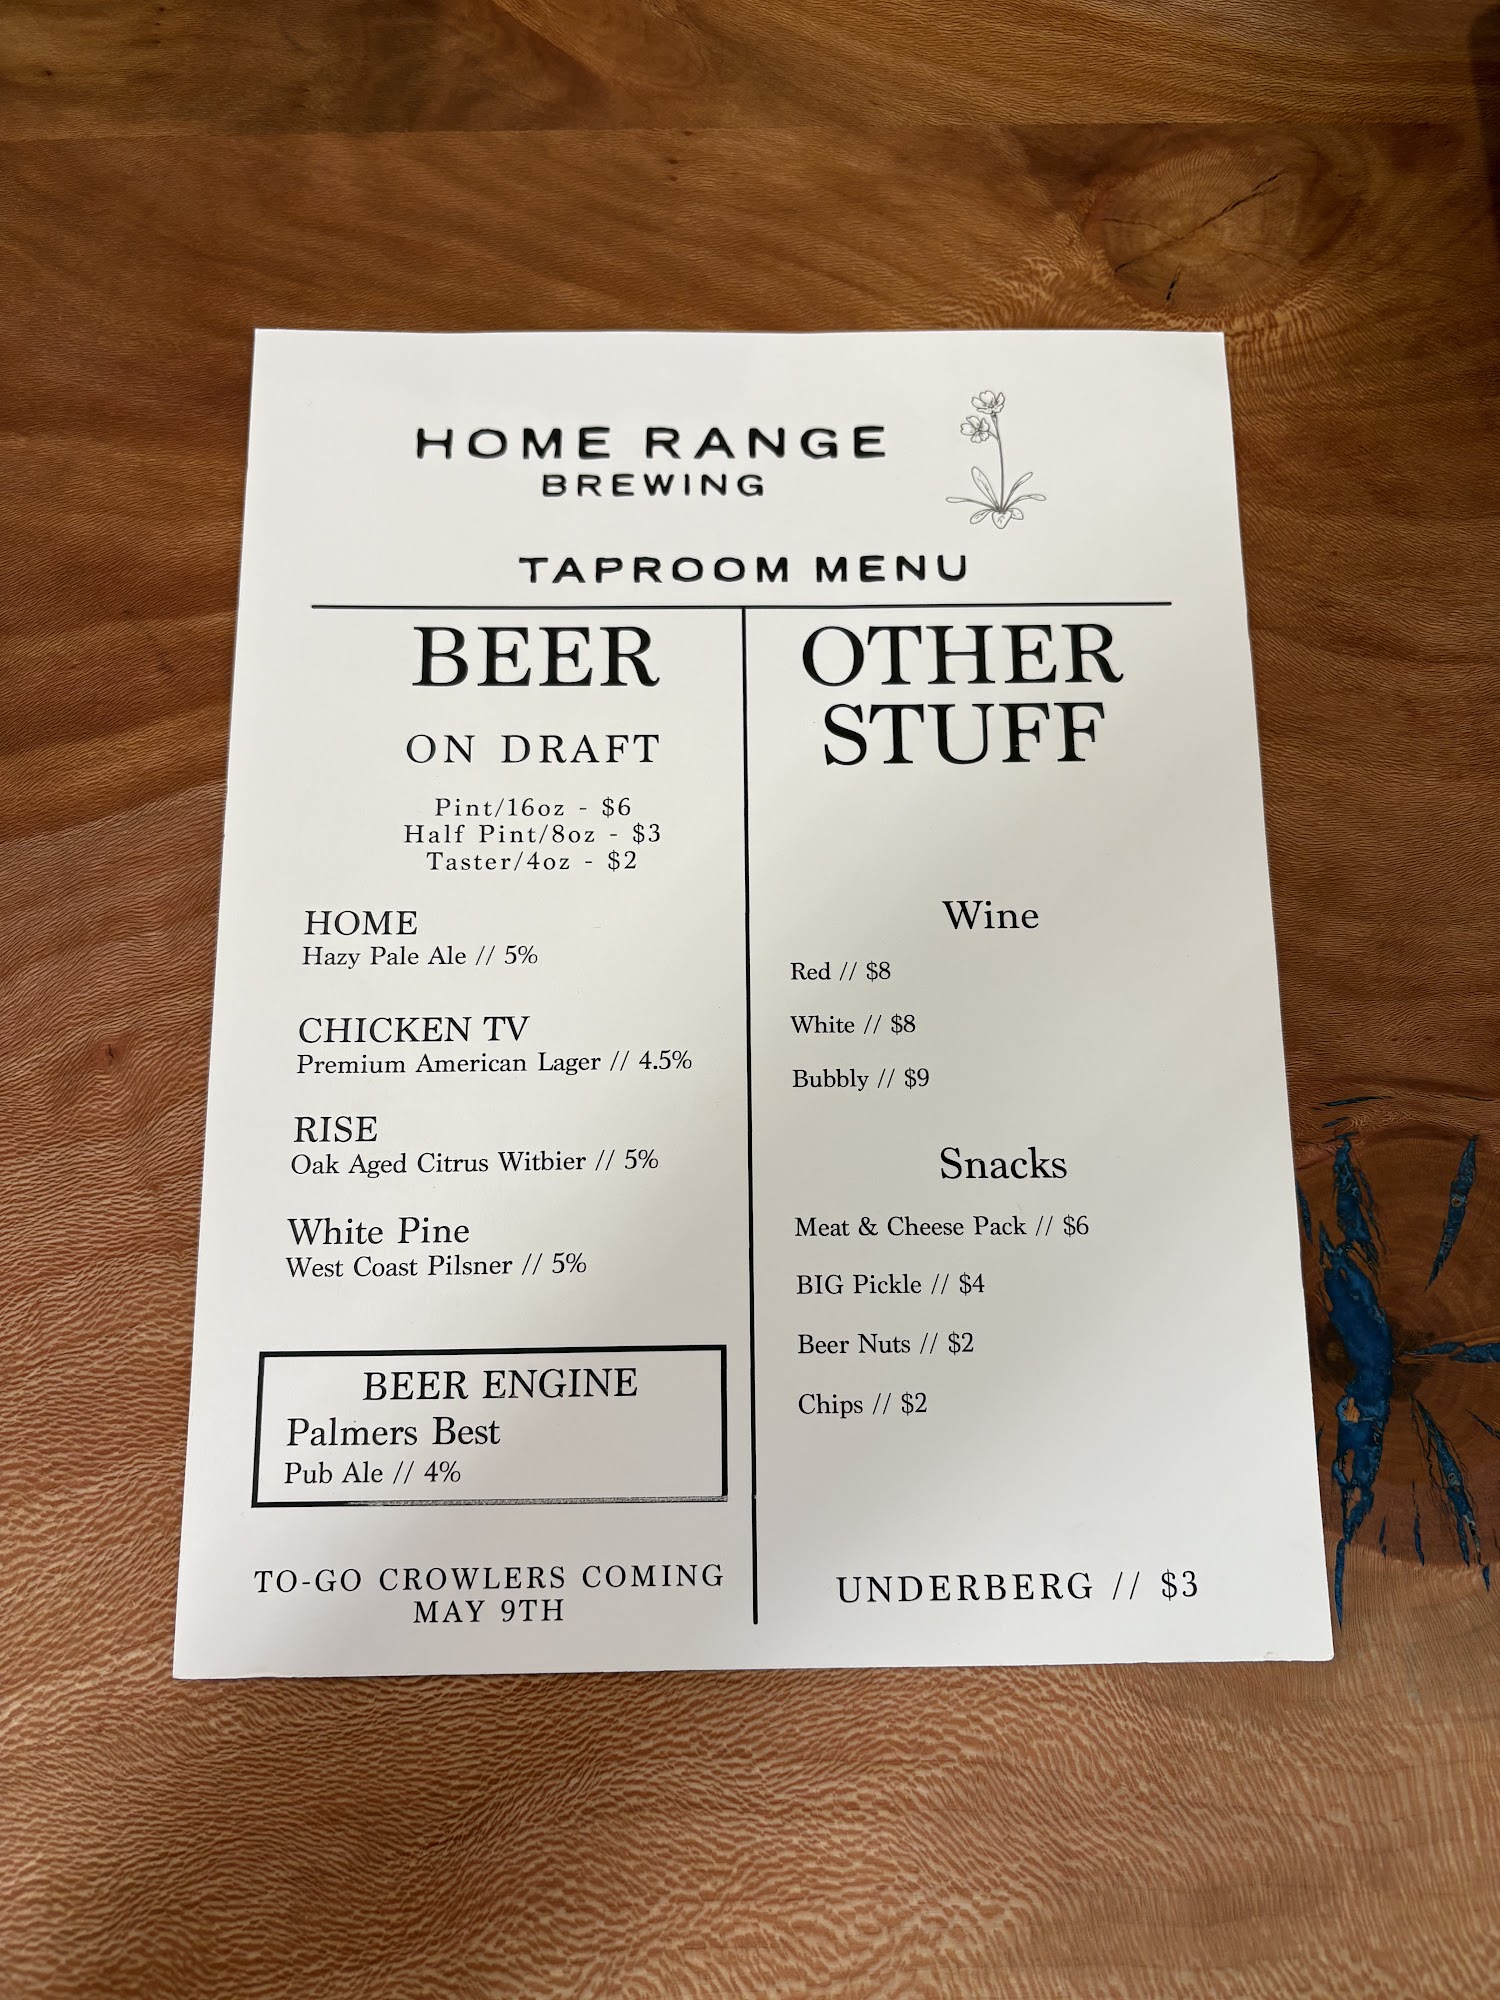 HOME RANGE
BREWING
TAPROOM MENU
BEER
ON DRAFT
Pint/16oz - $6
Half Pint/8oz - $3
Taster/4oz - $2
HOME
Hazy Pale Ale // 5%
CHICKEN TV
Premium American Lager // 4.5%
RISE
Oak Aged Citrus Witbier // 5%
White Pine
West Coast Pilsner // 5%
BEER ENGINE
Palmers Best
Pub Ale // 4%
TO-GO CROWLERS COMING
MAY 9TH
OTHER
STUFF
Wine
Red // $8
White // $8
Bubbly // $9
Snacks
Meat & Cheese Pack // $6
BIG Pickle // $4
Beer Nuts // $2
Chips // $2
UNDERBERG // $3